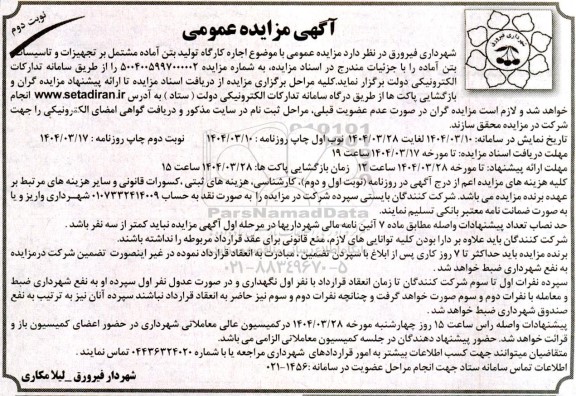 نوبت دوم
آگهی مزایده عمومی
شهرداری فیرورق
شهرداری فیرورق در نظر دارد مزایده عمومی با موضوع اجاره کارگاه تولید بتن آماده مشتمل بر تجهیزات و تاسیسات
بتن آماده را با جزئیات مندرج در اسناد مزایده، به شماره مزایده ۵۰۰۴۰۰۵۹۹۷۰۰۰۰۰۲ را از طریق سامانه تدارکات
الکترونیکی دولت برگزار نماید.کلیه مراحل برگزاری مزایده از دریافت اسناد مزایده تا ارائه پیشنهاد مزایده گران و
بازگشایی پاکت ها از طریق درگاه سامانه تدارکات الکترونیکی دولت ( ستاد ) به آدرس www.setadiran.ir انجام
خواهد شد و لازم است مزایده گران در صورت عدم عضویت قبلی، مراحل ثبت نام در سایت مذکور و دریافت گواهی امضای الکترونیکی را جهت
شرکت در مزایده محقق سازند.
تاریخ نمایش در سامانه: ۱۴۰۴/۰۳/۱۰ لغایت ۱۴۰۴/۰۳/۲۸ نوبت اول چاپ روزنامه : ۱۴۰۴/۰۳/۱۰ نوبت دوم چاپ روزنامه : ۱۴۰۴/۰۳/۱۷
مهلت دریافت اسناد مزایده: تا مورخه ۱۴۰۴/۰۳/۱۷ ساعت ۱۹
مهلت ارائه پیشنهاد: تا مورخه ۱۴۰۴/۰۳/۲۸ ساعت زمان بازگشایی پاکت ها: ۱۴۰۴/۰۳/۲۸ ساعت ۱۵
کلیه هزینه های مزایده اعم از درج آگهی در روزنامه (نوبت اول و دوم)، کارشناسی، هزینه های ثبتی ،کسورات قانونی و سایر هزینه های مرتبط بر
عهده برنده مزایده می باشد. شرکت کنندگان بایستی سپرده شرکت در مزایده را به صورت نقد به حساب ۰۱۰۷۳۳۲۴۱۴۰۰۹ شهرداری واریز و یا
به صورت ضمانت نامه معتبر بانکی تسلیم نمایند.
ParsNamadData
حد نصاب تعداد پیشنهادات واصله مطابق ماده ۷ آئین نامه مالی شهرداریها در مرحله اول آگهی مزایده نباید کمتر از سه نفر باشد .
شرکت کنندگان باید علاوه بر دارا بودن کلیه توانایی های لازم، منع قانونی برای عقد قرارداد مربوطه را نداشته باشند.
برنده مزایده باید حداکثر تا ۷ روز کاری پس از ابلاغ با سپردن تضمین ، مبادرت به انعقاد قرارداد نموده در غیر اینصورت تضمین شرکت درمزایده
به نفع شهرداری ضبط خواهد شد .
۰۲۱-۸۸۳۴۹۶۷۰-۵
سپرده نفرات اول تا سوم شرکت کنندگان تا زمان انعقاد قرارداد با نفر اول نگهداری و در صورت عدول نفر اول سپرده او به نفع شهرداری ضبط
و معامله با نفرات دوم و سوم صورت خواهد گرفت و چنانچه نفرات دوم و سوم نیز حاضر به انعقاد قرارداد نباشند سپرده آنان نیز به ترتیب به نفع
صندوق شهرداری ضبط خواهد شد .
پیشنهادات واصله راس ساعت ۱۵ روز چهارشنبه مورخه ۱۴۰۴/۰۳/۲۸ درکمیسیون عالی معاملاتی شهرداری در حضور اعضای کمیسیون باز و
قرائت خواهد شد. حضور پیشنهاد دهندگان در جلسه کمیسیون معاملاتی الزامی می باشد.
متقاضیان میتوانند جهت کسب اطلاعات بیشتر به امور قراردادهای شهرداری مراجعه یا با شماره ۰۴۴۳۶۳۲۴۰۲۰ تماس نمایند .
اطلاعات تماس سامانه ستاد جهت انجام مراحل عضویت در سامانه :۱۴۵۶-۰۲۱
شهردار فیرورق _ لیلا مکاری